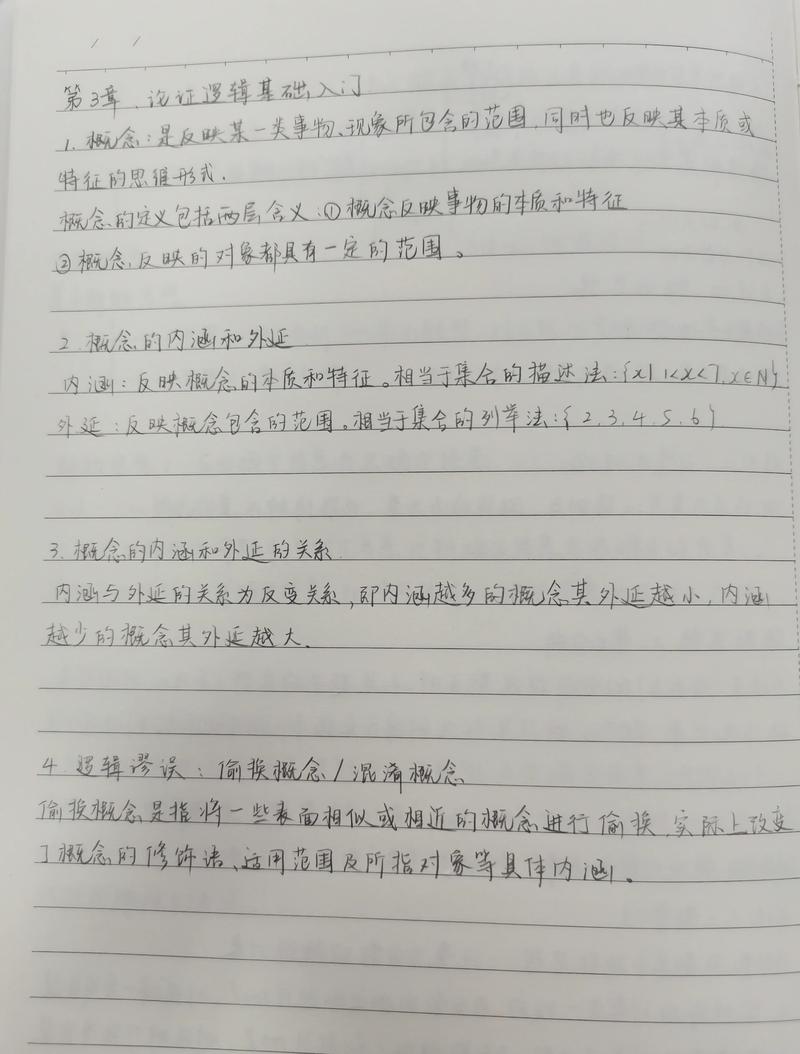 第3章、论证逻辑基础入门
1. 概念：是反映某一类事物、现象所包含的范围，同时也反映其本质或
特征的思维形式.
概念的定义包括两层含义：①概念反映事物的本质和特征
②概念反映的对象都具有一定的范围。
2. 概念的内涵和外延
内涵：反映概念的本质和特征。相当于集合的描述法：{x| 1<x<7, x∈N}
外延：反映概念包含的范围。相当于集合的列举法：{2.3.4.5.6}
3. 概念的内涵和外延的关系
内涵与外延的关系为反变关系，即内涵越多的概念其外延越小，内涵
越少的概念其外延越大.
4. 逻辑谬误：偷换概念/混淆概念
偷换概念是指将一些表面相似或相近的概念进行偷换，实际上改变
了概念的修饰语、适用范围及所指对象等具体内涵。